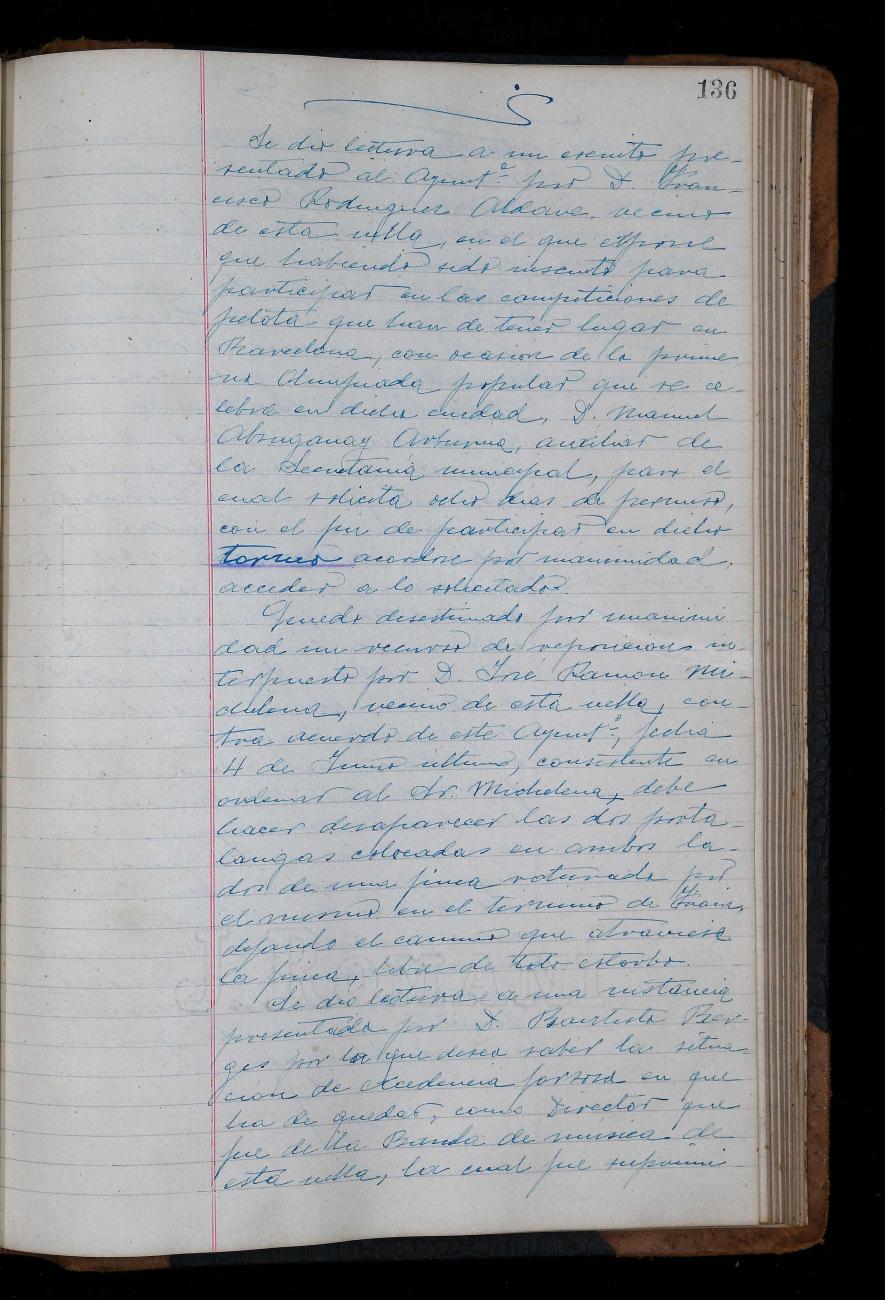 136
Se dió lectura a un escrito pre-
sentado al Ayuntº por D. Fran-
cisco Rodriguez Aldave, vecino
de esta villa, en el que expone
que habiendo sido inscrito para
participar en las competiciones de
pelota que han de tener lugar en
Barcelona, con ocasión de la prime
ra Olimpiada popular que se ce-
lebra en dicha ciudad, D. Manuel
auxiliar de
la Secretaria municipal, para el
cual solicita ocho dias de permiso,
con el fin de participar en dicho
torneo acordose por unanimidad,
acceder a lo solicitado.
Quedo desestimado por unanimi
dad un recurso de reposicion in-
terpuesto por D. José Ramon Mi-
chelena, vecino de esta villa, con-
tra acuerdo de este Ayuntº, fecha
4 de Junio ultimo, consistente en
ordenar al Sr. Michelena, debe
hacer desaparecer las dos porta-
langas colocadas en ambos la-
dos de una finca roturada por
el mismo en el termino de
dejando el camino que atraviesa
la finca, libre de todo estorbo.
Se dió lectura a una instancia
presentada por D. Bautista Ber-
ges por la que desea saber la situa-
cion de excedencia forzosa en que
ha de quedar, como Director que
fue de la Banda de música de
esta villa, la cual fue suprimi-